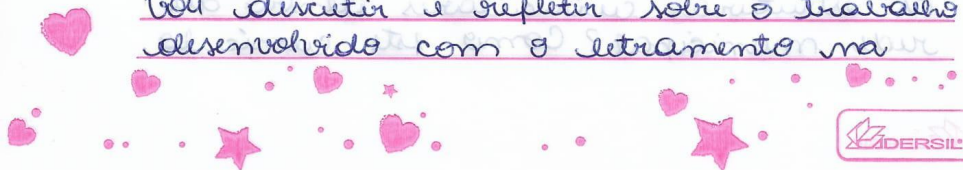 vou discutir e refletir sobre o trabalho
desenvolvido com o letramento na
CADERSIL